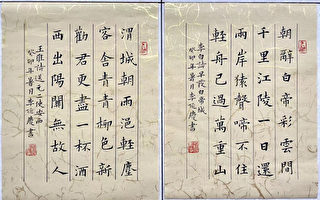 朝辭白帝彩雲間
千里江陵一日還
兩岸猿聲啼不住
輕舟已過萬重山
李白詩早發白帝城
癸卯年月李慶書
渭城朝雨浥輕塵
客舍青青柳色新
勸君更盡一杯酒
西出陽關無故人
王維詩送元二使安西
癸卯年月李慶書